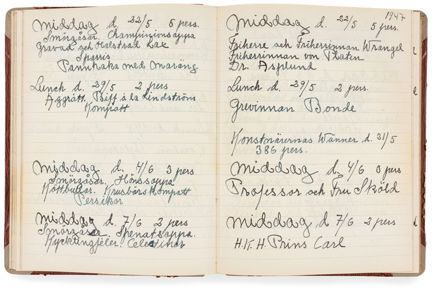 Middag d. 22/5 5 pers.
Smörgåsar, Championsoppa
Gravad och Halstrad Lax
Sparris
Pannkaka med maräng
Lunch d. 29/5 2 pers
Äggrätt, Biff à la Lindström
Kompott
Middag d. 4/6 3 pers
Smörgåsar, Hönssoppa
Köttbullar, Krusbärskompott
Persikor
Middag d. 7/6 2 pers
Smörgåsar Spenatsoppa
Kycklinggelé,
1947
Middag d. 22/5 5 pers.
Friherre och Friherrinnan Wrangel
Friherrinnan von Platen
Dr. Asplund
Lunch d. 29/5 2 pers
Grevinnan Bonde
Konstnärernas Wänner d. 31/5
386 pers.
Middag d. 4/6 pers
Professor och Fru Sköld
Middag d. 7/6 2 pers
H.K.H Prins Carl